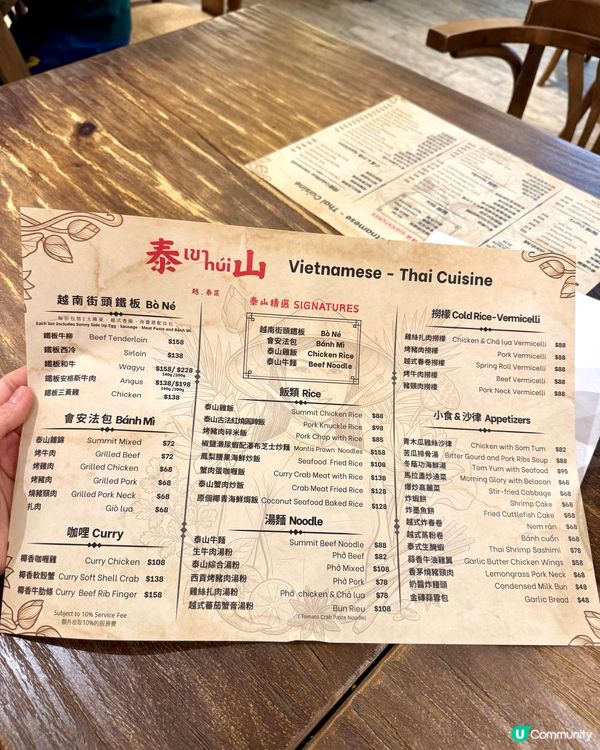 泰山 Vietnamese - Thai Cuisine
húi
越．泰菜
越南街頭鐵板 Bò Né
Each Set Includes Sunny Side Up Egg · Sausage · Meat Paste and Bánh Mì
鐵板牛柳 Beef Tenderloin $158
鐵板西冷 Sirloin $138
鐵板和牛 Wagyu $158/ $228
140g/200g
鐵板安格斯牛肉 Angus $138/$198
140g/200g
鐵板三黃雞 Chicken $138
會安法包 Bánh Mì
泰山雜錦 Summit Mixed $72
烤牛肉 Grilled Beef $72
烤雞肉 Grilled Chicken $68
烤豬肉 Grilled Pork $68
燒豬頸肉 Grilled Pork Neck $68
扎肉 Giò lụa $68
咖哩 Curry
椰香咖喱雞 Curry Chicken $108
椰香軟殼蟹 Curry Soft Shell Crab $138
椰香牛肋條 Curry Beef Rib Finger $158
Subject to 10% Service Fee
額外收取10%的服務費
泰山精選 SIGNATURES
越南街頭鐵板 Bò Né
會安法包 Bánh Mì
泰山雞飯 Chicken Rice
泰山牛麵 Beef Noodle
飯類 Rice
泰山雞飯 Summit Chicken Rice $88
泰山古法紅燒圓蹄飯 Pork Knuckle Rice $98
烤豬扒碎米飯 Pork Chop with Rice $85
椒鹽瀨尿蝦配瀑布芝士炒麵 Mantis Prawn Noodles $158
鳳梨腰果海鮮炒飯 Seafood Fried Rice $108
蟹肉蛋咖喱飯 Curry Crab Meat with Rice $138
蟹肉炒飯 Crab Meat Fried Rice $128
原個椰青海鮮焗飯 Coconut Seafood Baked Rice $128
湯麵 Noodle
泰山牛麵 Summit Beef Noodle $88
生牛肉湯粉 Phở Beef $82
泰山綜合湯粉 Phở Mixed $108
西貢烤豬肉湯粉 Phở Pork $78
雞絲扎肉湯粉 Phở chicken & Chả lụa $78
越式蕃茄蟹膏湯粉 Bun Rieu $108
( Tomato Crab Paste Noodle)
撈檬 Cold Rice-Vermicelli
雞絲扎肉撈檬 Chicken & Chả lụa Vermicelli $88
烤豬肉撈檬 Pork Vermicelli $88
越式春卷撈檬 Spring Roll Vermicelli $88
烤牛肉撈檬 Beef Vermicelli $88
豬頸肉撈檬 Pork Neck Vermicelli $88
小食 & 沙律 Appetizers
青木瓜雞絲沙律 Chicken with Som Tum $82
苦瓜排骨湯 Bitter Gourd and Pork Ribs Soup $88
冬蔭功海鮮湯 Tom Yum with Seafood $95
馬拉盞炒通菜 Morning Glory with Belacan $68
爆炒高麗菜 Stir-fried Cabbage $68
炸蝦餅 Shrimp Cake $68
炸墨魚餅 Fried Cuttlefish Cake $58
越式炸春卷 Nem rán $68
越式蒸粉卷 Bánh cuốn $68
泰式生醃蝦 Thai Shrimp Sashimi $78
蒜香牛油雞翼 Garlic Butter Chicken Wings $58
香茅燒豬頸肉 Lemongrass Pork Neck $68
奶醬炸饅頭 Condensed Milk Bun $48
金磚蒜蓉包 Garlic Bread $48
Community